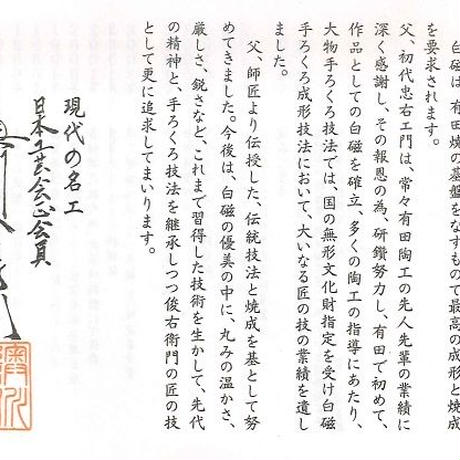 白磁は、有田焼の基盤をなすもので最高の成形と焼成
を要求されます。
父、初代忠右エ門は、常々有田陶工の先人先輩の業績に
深く感謝し、その報恩の為、研鑽努力し、有田で初めて、
作品としての白磁を確立、多くの陶工の指導にあたり、
大物手ろくろ技法では、国の無形文化財指定を受け白磁
手ろくろ成形技法において、大いなる匠の技の業績を遺し
ました。
父、師匠より伝授した、伝統技法と焼成を基として努
めてきました。今後は、白磁の優美の中に、丸みの温かさ、
厳しさ、鋭さなど、これまで習得した技術を生かして、先代
の精神と、手ろくろ技法を継承しつつ俊右衛門の匠の技
として更に追求してまいります。
現代の名工
日本工芸会正会員